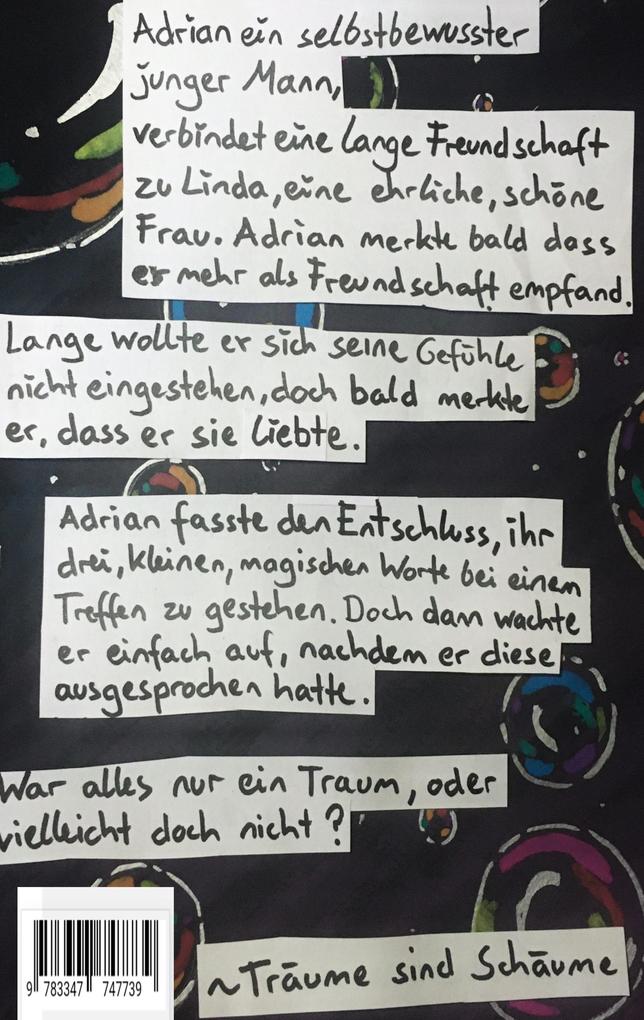 Adrian ein selbstbewusster
junger Mann,
verbindet eine lange Freundschaft
zu Linda, eine ehrliche, schöne
Frau. Adrian merkte bald dass
er mehr als Freundschaft empfand.
Lange wollte er sich seine Gefühle
nicht eingestehen, doch bald merkte
er, dass er sie liebte.
Adrian fasste den Entschluss, ihr
drei, kleinen, magischen Worte bei einem
Treffen zu gestehen. Doch dann wachte
er einfach auf, nachdem er diese
ausgesprochen hatte.
War alles nur ein Traum, oder
vielleicht doch nicht?
9 783347 747739
~Träume sind Schäume